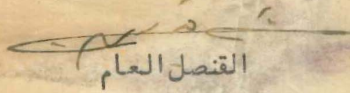 القنصل العام